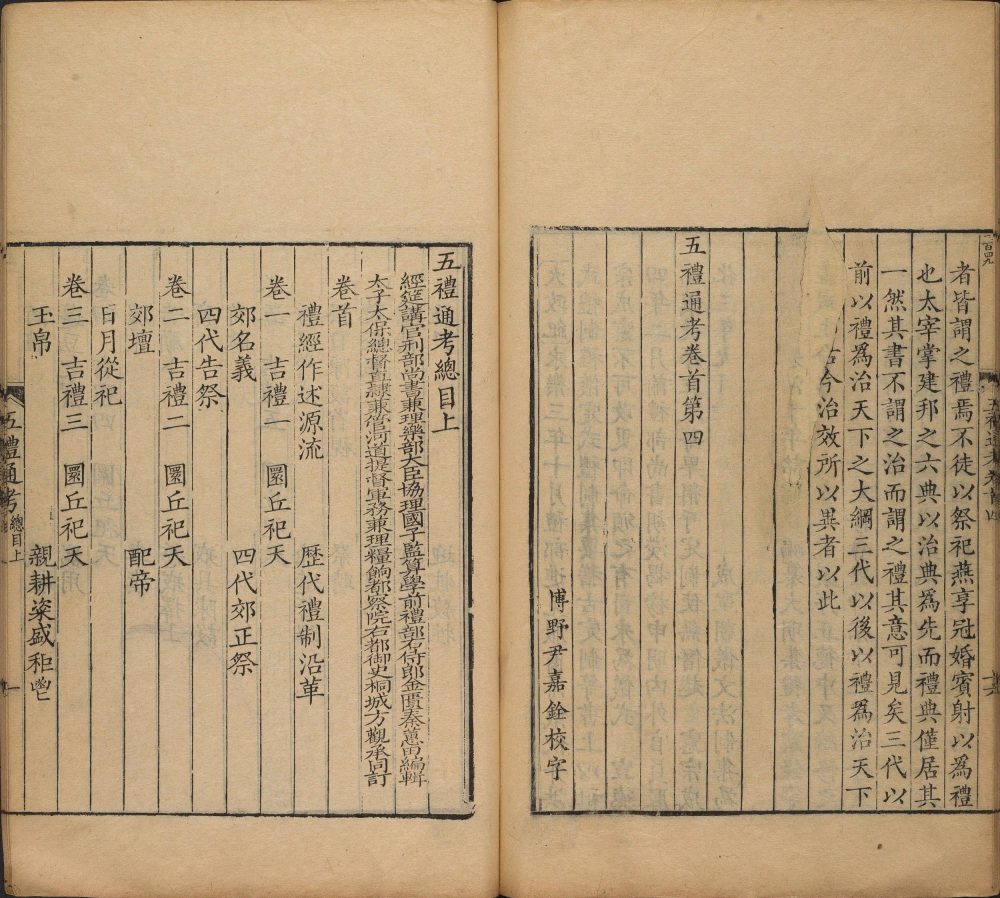 者皆謂之禮焉不徒以祭祀燕享冠婚賓射以為禮
也太宰掌建邦之六典以治典為先而禮典僅居其
一然其書不謂之治而謂之禮其意可見矣三代以
前以禮為治天下之大綱三代以後以禮為治天下
古今治效所以異者以此
五禮通考卷首第四
博野尹嘉銓校字
五禮通考總目上
經筵講官刑部尚書兼理樂部大臣協理國子監算學前禮部右侍郎金匱秦蕙田編輯
太子太保總督直隸兼管河道提督軍務兼理糧餉都察院右都御史桐城方觀承同訂
卷首
禮經作述源流 歷代禮制沿革
卷一 吉禮一 圜丘祀天
郊名義 四代郊正祭
四代告祭
卷二 吉禮二 圜丘祀天
郊壇 配帝
日月從祀
卷三 吉禮三 圜丘祀天
玉帛 親耕粢盛秬鬯
五禮通考 總目上 一